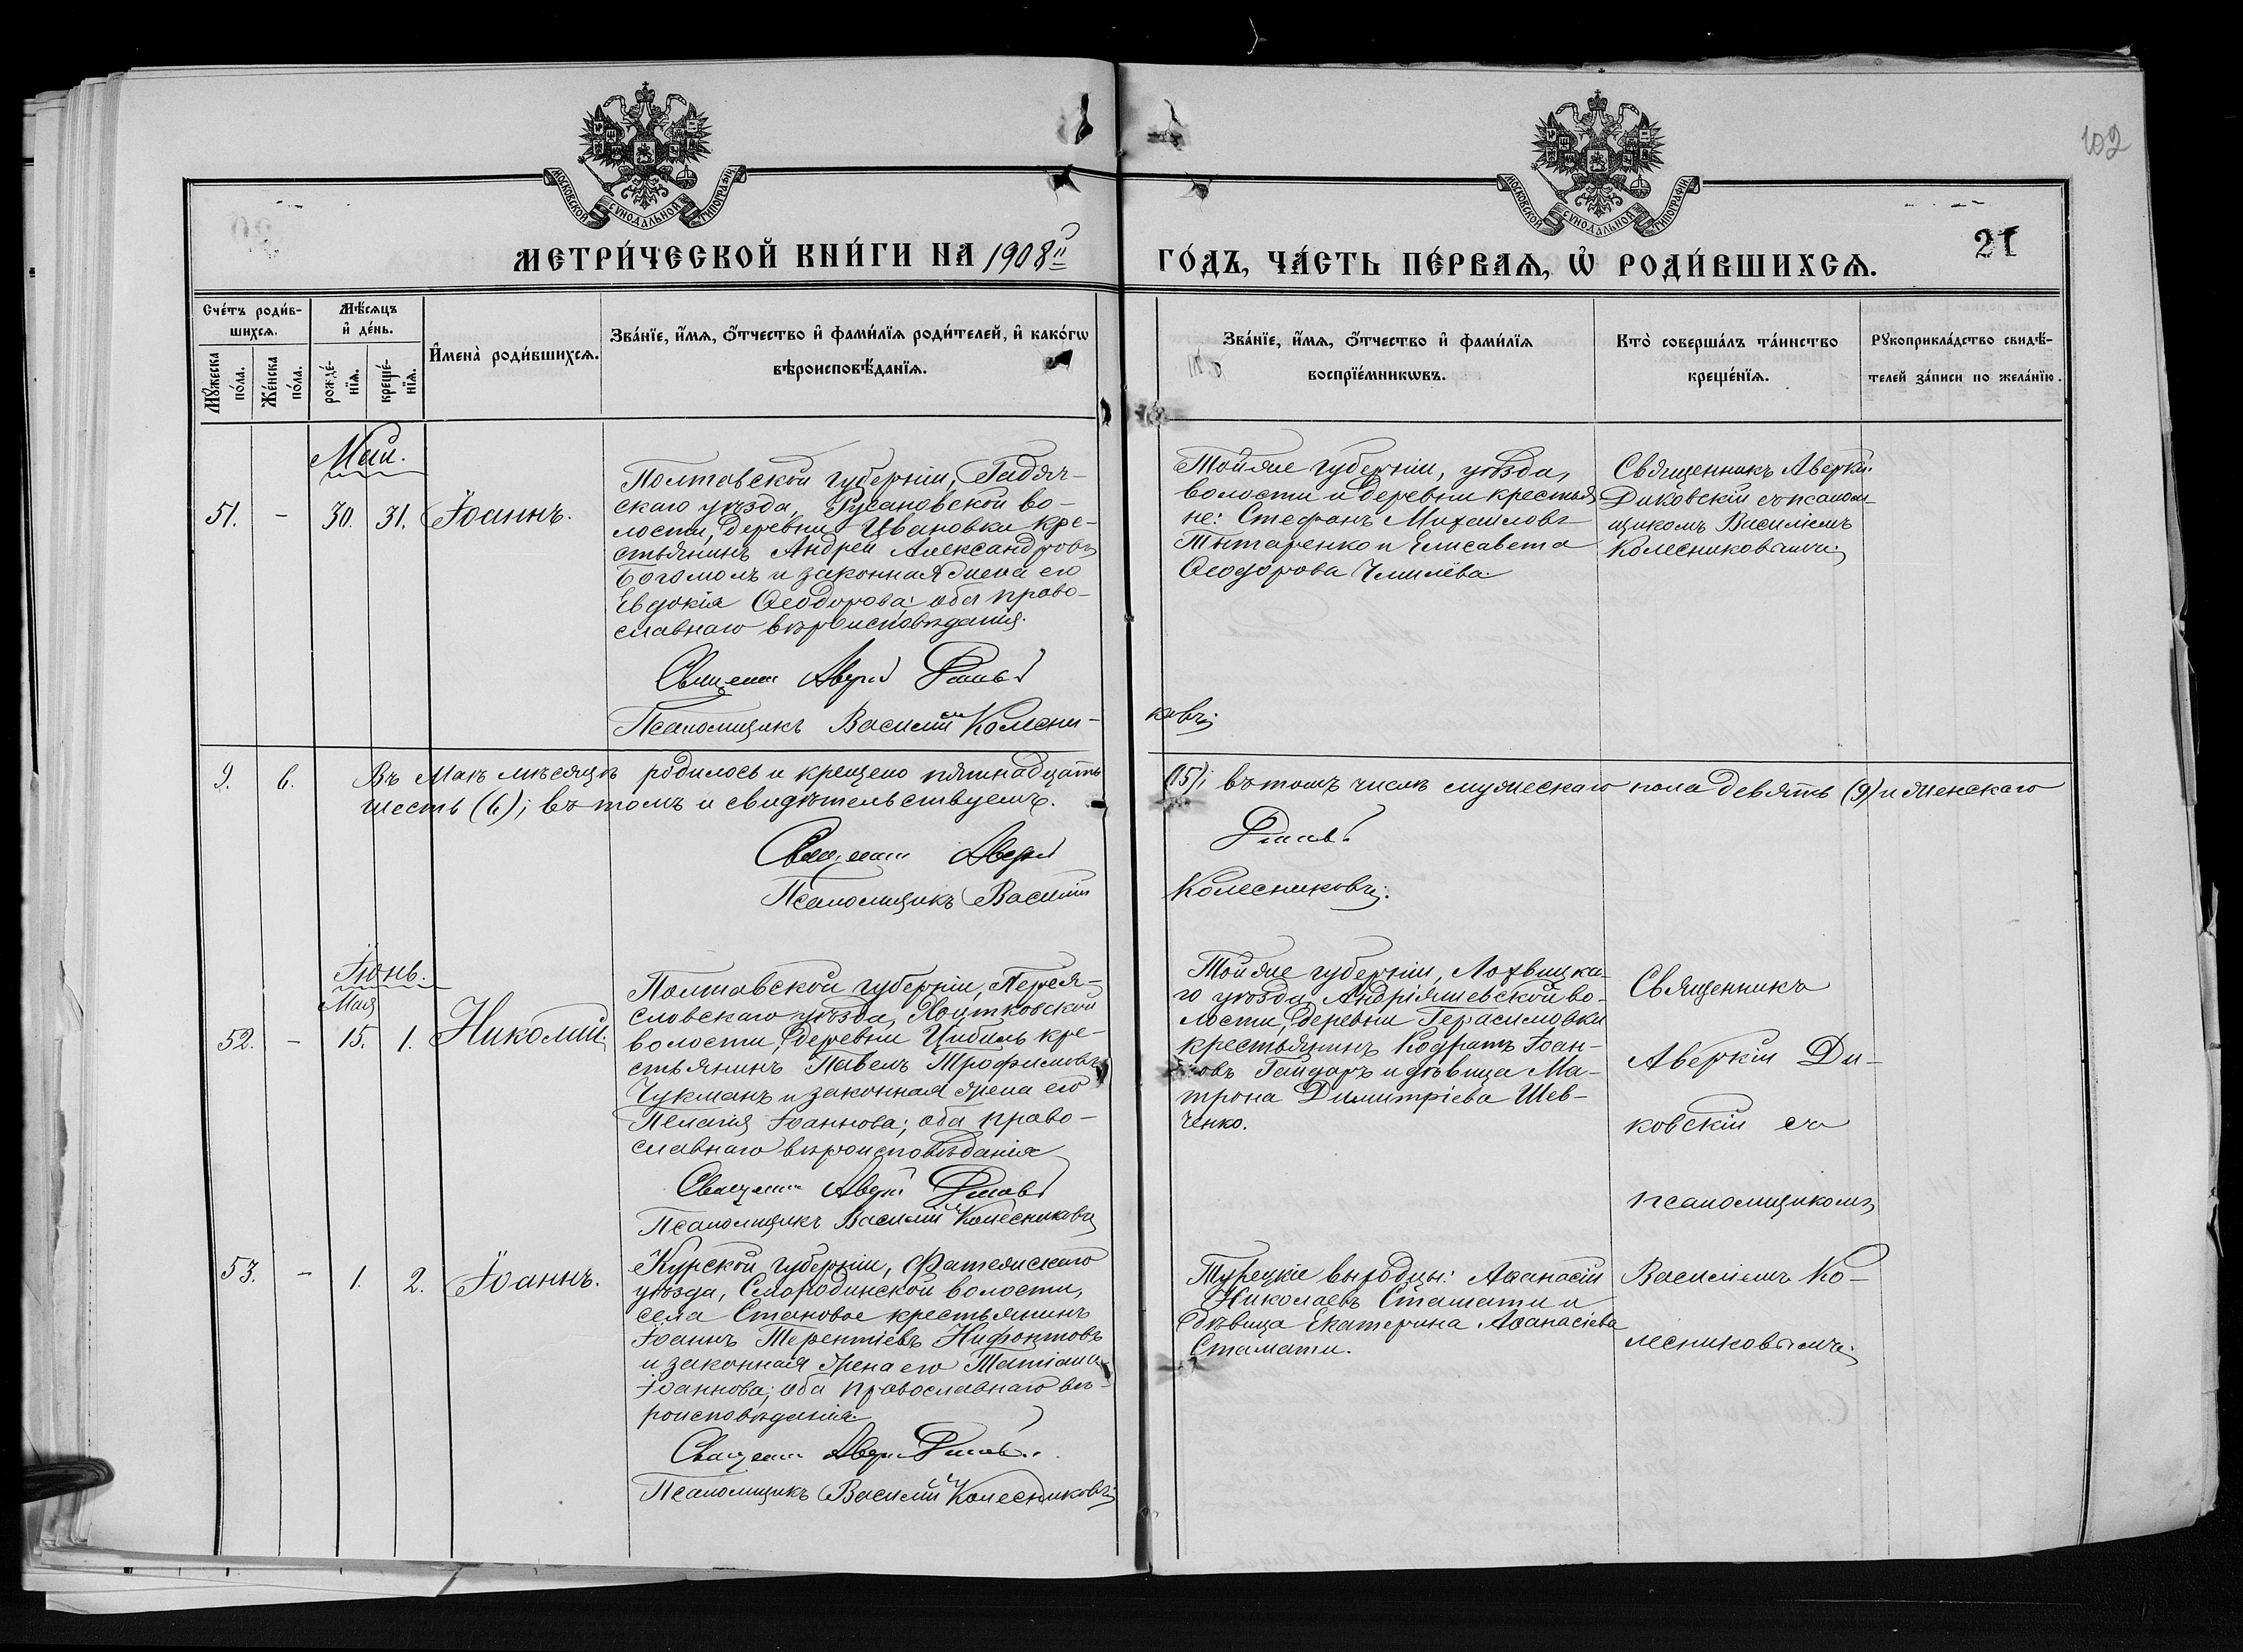 102
МОСКОВСКОЙ СѴНОДАЛЬНОЙ ТИПОГРАФІИ
МОСКОВСКОЙ СѴНОДАЛЬНОЙ ТИПОГРАФІИ
МЕТРИ́ЧЕСКОЙ КНИ́ГИ НА 1908й
ГО́ДЪ, ЧА́СТЬ ПЕ́РВАѦ, Ѡ҆ РОДИ́ВШИХСѦ.
21
Сче́тъ роди́в-
шихсѧ.
Мꙋ́жеска
по́ла.
Же́нска
по́ла.
Мѣ́сѧцъ
и҆ де́нь.
рожде́-
нїѧ.
креще́-
нїѧ.
И҆мена̀ роди́вшихсѧ.
Зва́нїе, и҆́мѧ, ѻ҆́тчество и҆ фами́лїѧ роди́телей, и҆ како́гѡ
вѣроисповѣ́данїѧ.
Зва́нїе, и҆́мѧ, ѻ҆́тчество и҆ фами́лїѧ
воспрїе́мникѡвъ.
Кто̀ соверша́лъ та́инство
креще́нїѧ.
Рꙋкоприкла́дство свидѣ́-
телей за́писи по жела́нїю.
Май.
51. - 30. 31. Іоаннъ.
Полтавской губерніи, Гадяч-
скаго уѣзда, Русановской во-
лости, деревни Ивановки кре-
стьянинъ Андрей Александровъ
Богомолъ и законная жена его
Евдокія Ѳеодорова; оба право-
славнаго вѣроисповѣданія.
Псаломщикъ Василій Колесни-
ковъ;
Тойже губерніи, уѣзда,
волости и деревни крестья-
не: Стефанъ Михаиловъ
Тытаренко и Елисавета
Ѳеодорова Чмилёва.
Священникъ Аверкій
Диковскій съ псалом-
щикомъ Василіемъ
Колесниковымъ;
9. 6. Въ Маѣ мѣсяцѣ родилось и крещено пятнадцать (15); въ томъ числѣ мужескаго пола девять (9) и женскаго
шесть (6); въ томъ и свидѣтельствуемъ.
Псаломщикъ Василій Колесниковъ;
Іюнь.
Мая
52. - 15. 1. Николай.
Полтавской губерніи, Перея-
словскаго уѣзда, Хоцковской
волости, деревни Цибиль кре-
стьянинъ Павелъ Трофимовъ
Чукманъ и законная жена его
Пелагія Іоаннова; оба право-
славнаго вѣроисповѣданія
Псаломщикъ Василій Колесниковъ
Тойже губерніи, Лохвицка-
го уѣзда Андріяшевской во-
лости, деревни Герасимовки
крестьянинъ Кодратъ Іоан-
новъ Гайдаръ и дѣвица Ма-
трона Димитріева Шев-
ченко.
Священникъ
Аверкій Ди-
ковскій съ
псаломщикомъ
53. - 1. 2. Іоаннъ.
Курской губерніи, Фатежскаго
уѣзда, Смородинской волости,
села Становое крестьянинъ
Іоаннъ Терентіевъ Нифонтовъ
и законная жена его Татіана
Іоаннова; оба православнаго вѣ-
роисповѣданія.
Псаломщикъ Василій Колесниковъ;
Турецкіе выходцы: Аѳанасій
Николаевъ Стамати и
дѣвица Екатерина Аѳанасіева
Стамати.
Василіемъ Ко-
лесниковымъ;